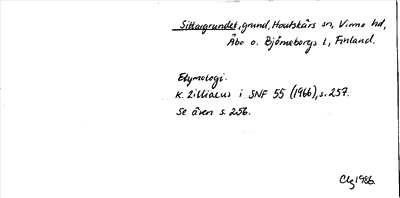 Sittargrundet, grund, Houtskärs sn, Virmo hd,
Åbo o. Björneborgs l, Finland.
Etymologi.
K. Zilliacus i SNF 55 (1966), s. 257.
Se även s. 256.
Clg 1986.